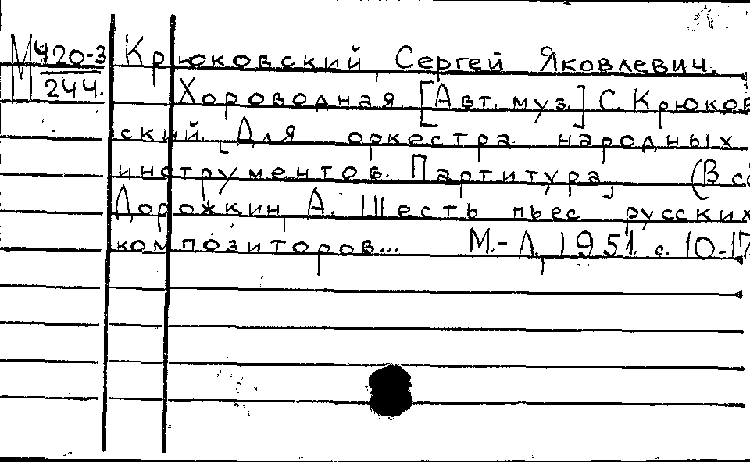 М 420-3 Крюковский Сергей Яковлевич.
244. Хороводная [Авт. муз.] С. Крюков
ский. [Для оркестра народных
инструментов. Партитура] (В сб
Дорожкин А. Шесть пьес русских
композиторов... М.-Л, 1951. с. 10-17